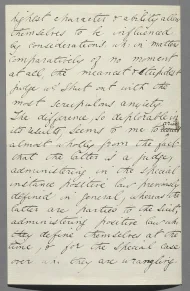 highest character & ability allow
themselves to be influenced
by considerations wh. in matters
comparatively of no moment
at all, the meanest & stupidest
judge wd. shut out with the
most scrupulous anxiety.
The difference, so deplorable in
its results, seems to me to
almost wholly from the fact
that the latter is a judge,
administering in the special
instance positive law previously
defined in general, whereas the
latter are parties to the suit,
administering positive law wh.
they define themselves at the
time, & for the special case
over wh. they are wrangling